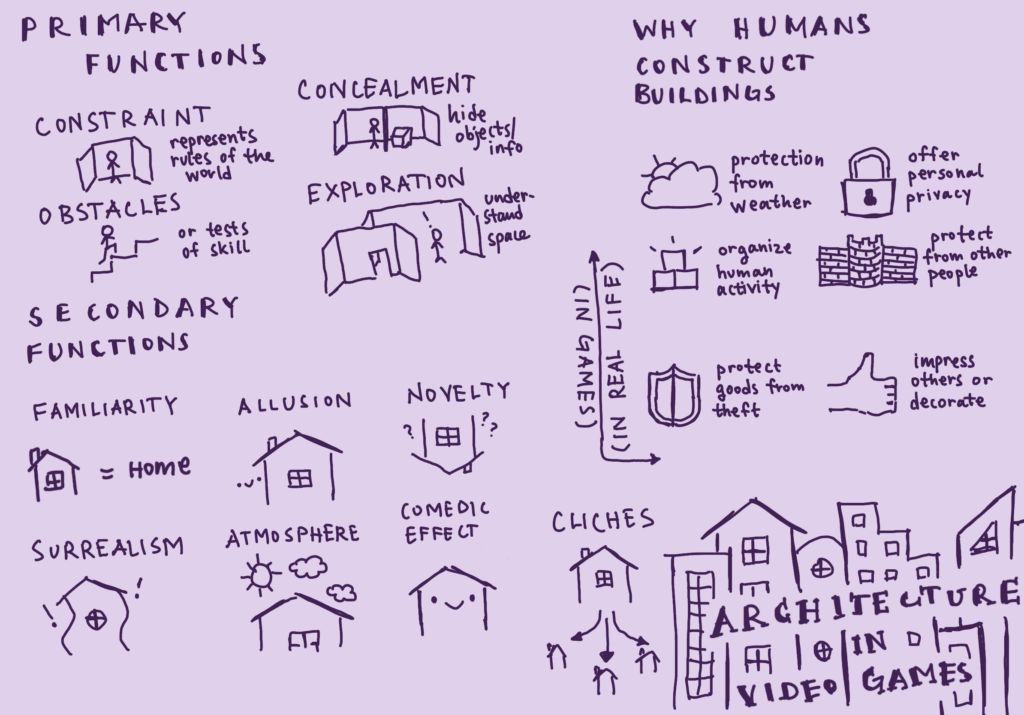 PRIMARY
FUNCTIONS
CONSTRAINT
represents
rules of the
world
CONCEALMENT
hide
objects/
info
OBSTACLES
or tests
of skill
EXPLORATION
under-
stand
space
SECONDARY
FUNCTIONS
FAMILIARITY
= Home
ALLUSION
NOVELTY
? ??
SURREALISM
! !
ATMOSPHERE
COMEDIC
EFFECT
CLICHES
WHY HUMANS
CONSTRUCT
BUILDINGS
protection
from
weather
offer
personal
privacy
organize
human
activity
protect
from other
people
protect
goods from
theft
impress
others or
decorate
(IN GAMES)
(IN REAL LIFE)
ARCHITECTURE
IN
VIDEO GAMES